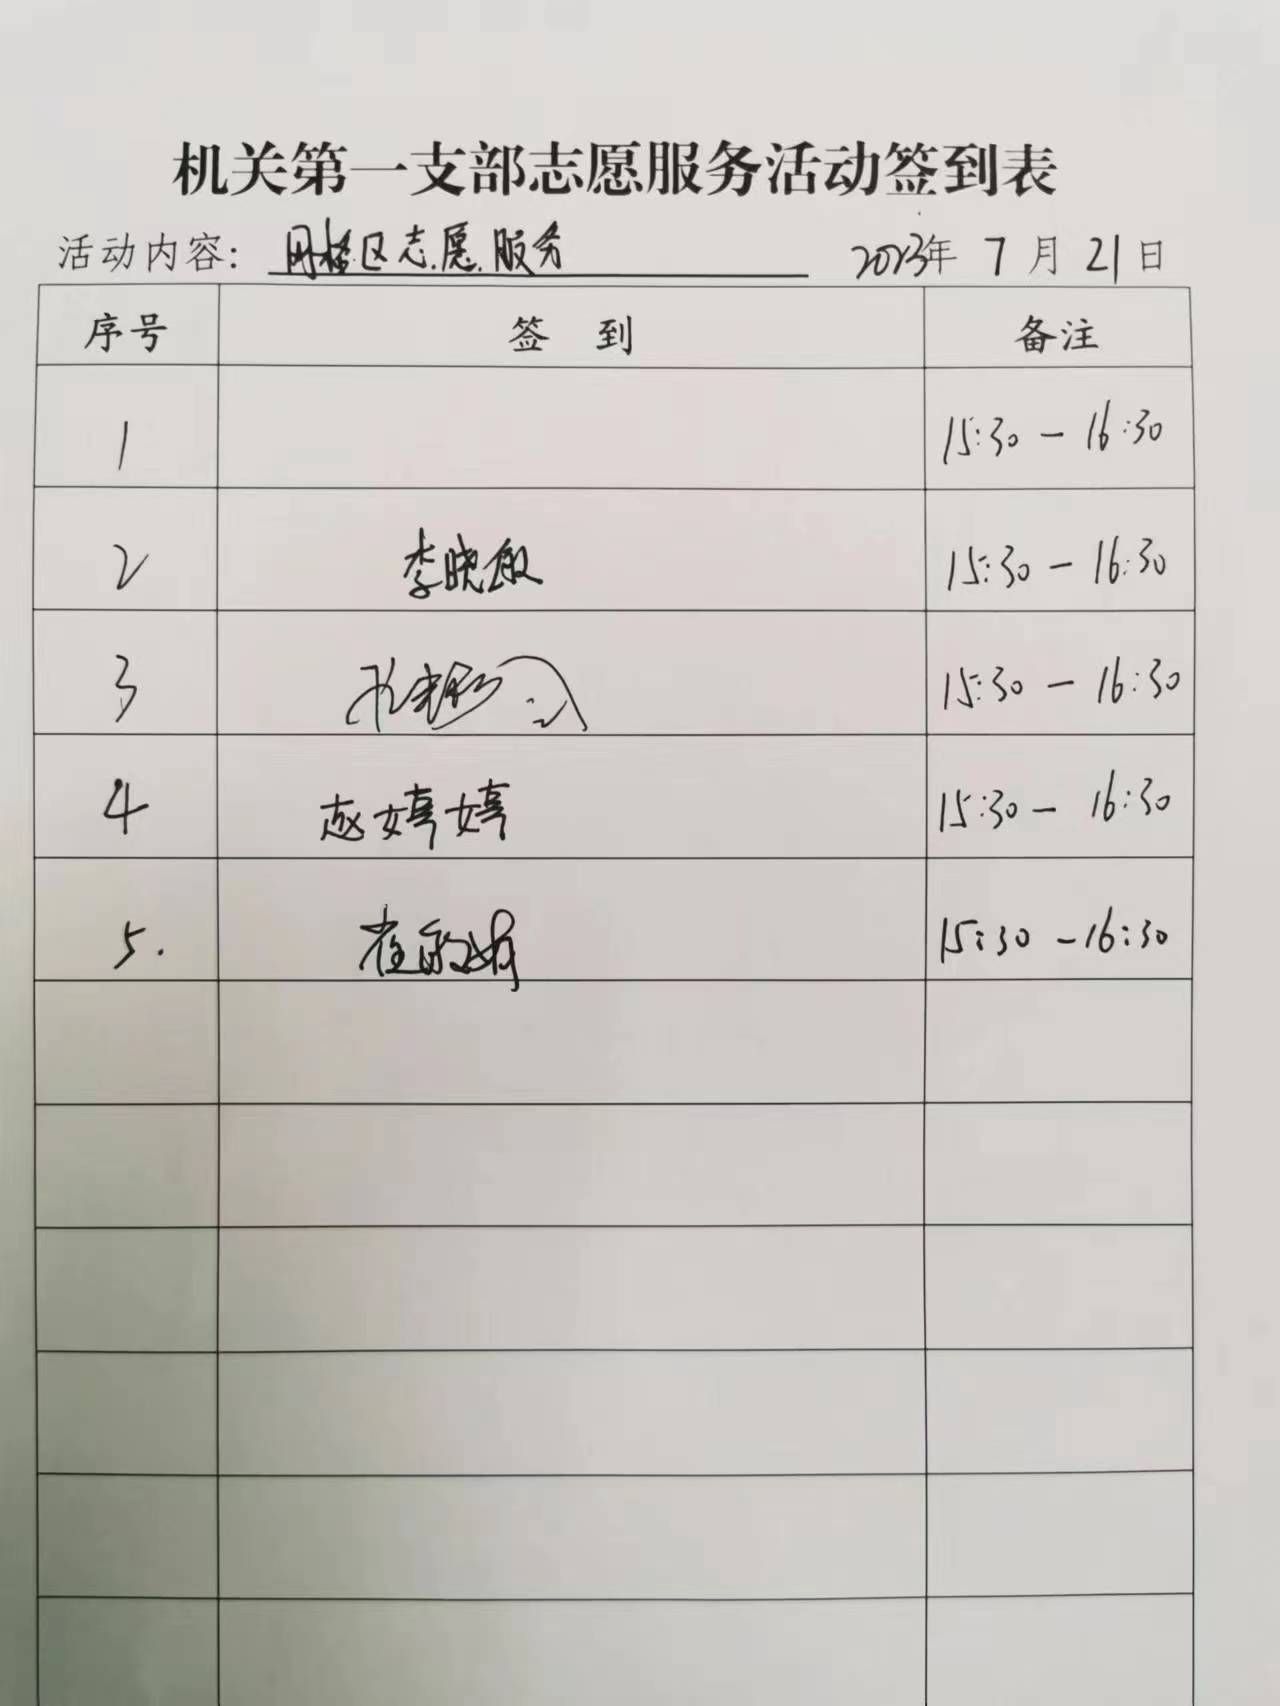 机关第一支部志愿服务活动签到表
活动内容: 网格区志愿服务 2023年 7 月 21 日
序号 签 到 备注
1 15:30 - 16:30
2 李晓敏 15:30 - 16:30
3 15:30 - 16:30
4 赵婷婷 15:30 - 16:30
5. 崔 15:30 - 16:30